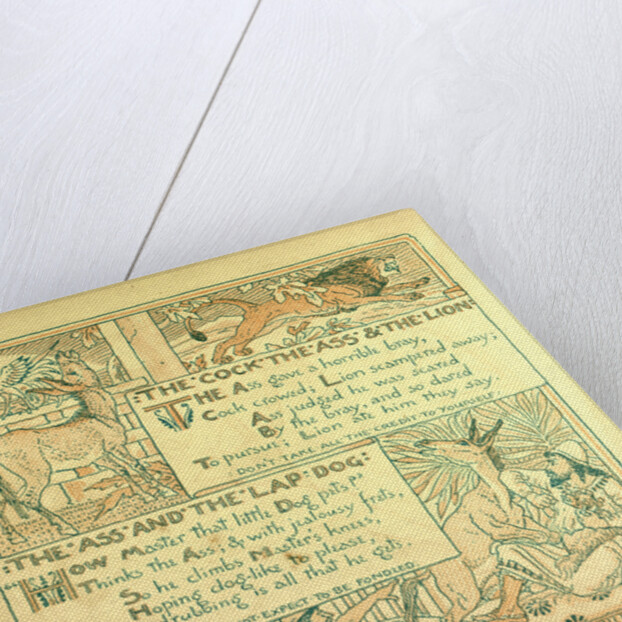 :THE·COCK·THE·ASS·&·THE·LION:
THE Ass gave a horrible bray,
Cock crowed; Lion scampered away;
Ass judged he was scared
By the bray, and so dared
To pursue; Lion ate him they say.
DON'T TAKE ALL THE CREDIT TO YOURSELF
:THE·ASS·AND·THE·LAP·DOG:
HOW Master that little Dog pats!"
Thinks the Ass; & with jealousy frets,
So he climbs Master's knees,
Hoping dog-like to please,
drubbing is all that he gets.
EXPECT TO BE FONDLED